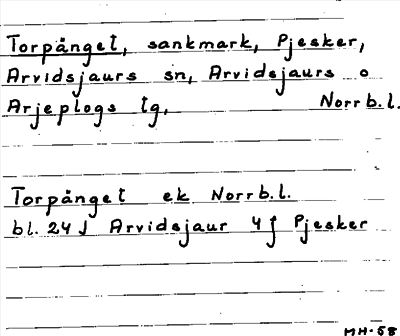 Torpänget, sankmark, Pjesker,
Arvidsjaurs sn, Arvidsjaurs o
Arjeplogs tg, Norrb.l.
Torpänget ek Norrb.l.
bl. 24J Arvidsjaur 4f Pjesker
MH-58